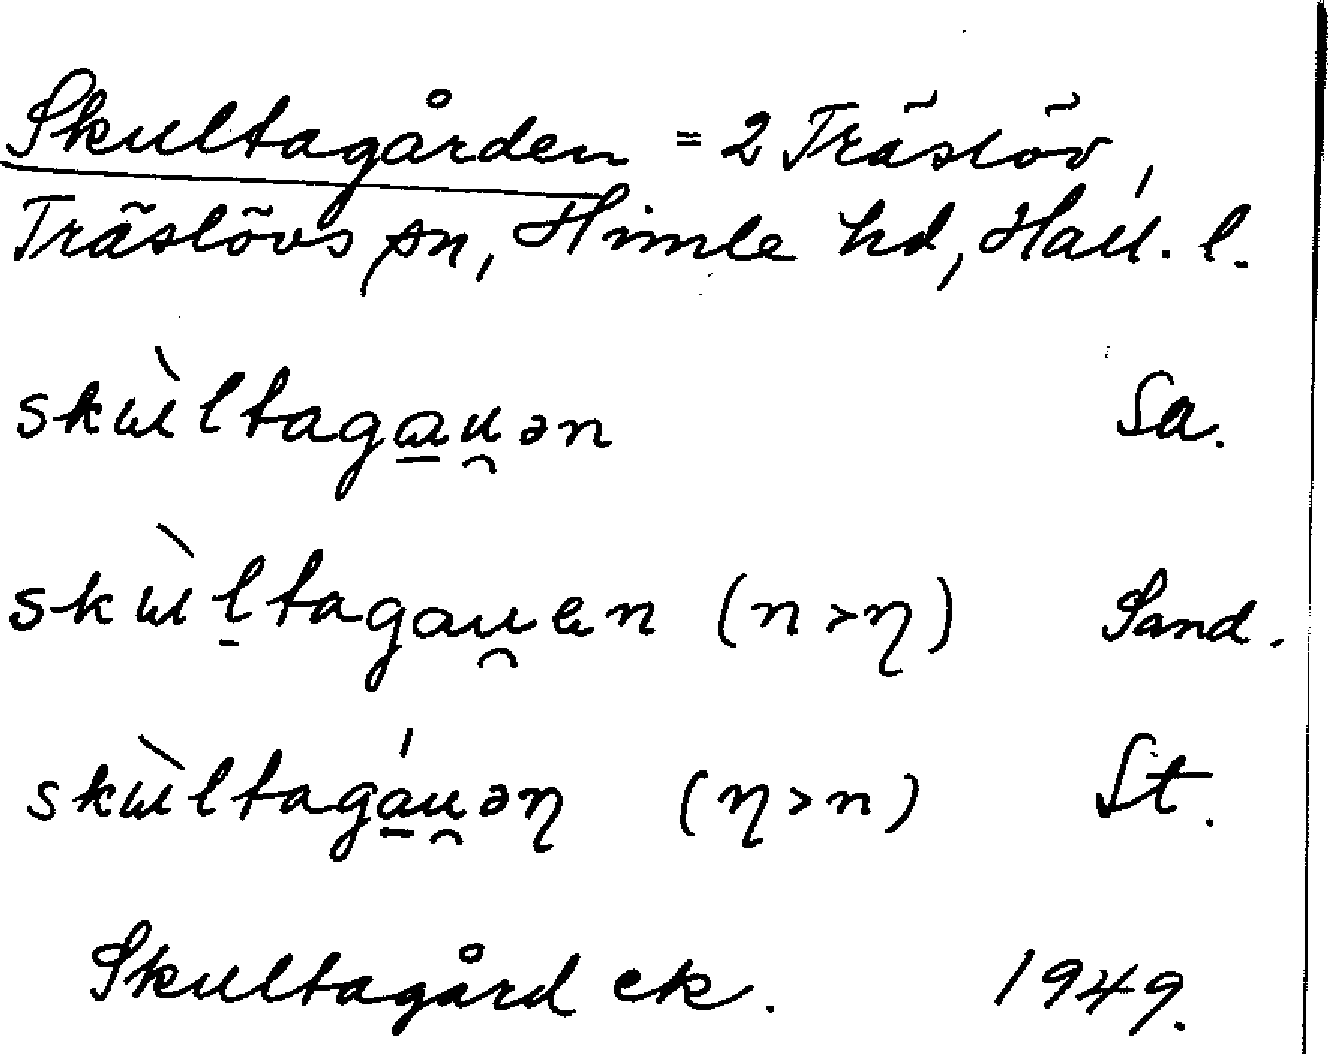 Skultagården = 2 Träslöv,
Träslövs sn, Himle hd, Hall. l.
skɯ̀ltaga̱u̯ən Sa.
skɯ̀l̠tagau̯en (n > η) Sand.
skɯ̀ltagá̱u̯əη (η > n) St.
Skultagård ek. 1949.